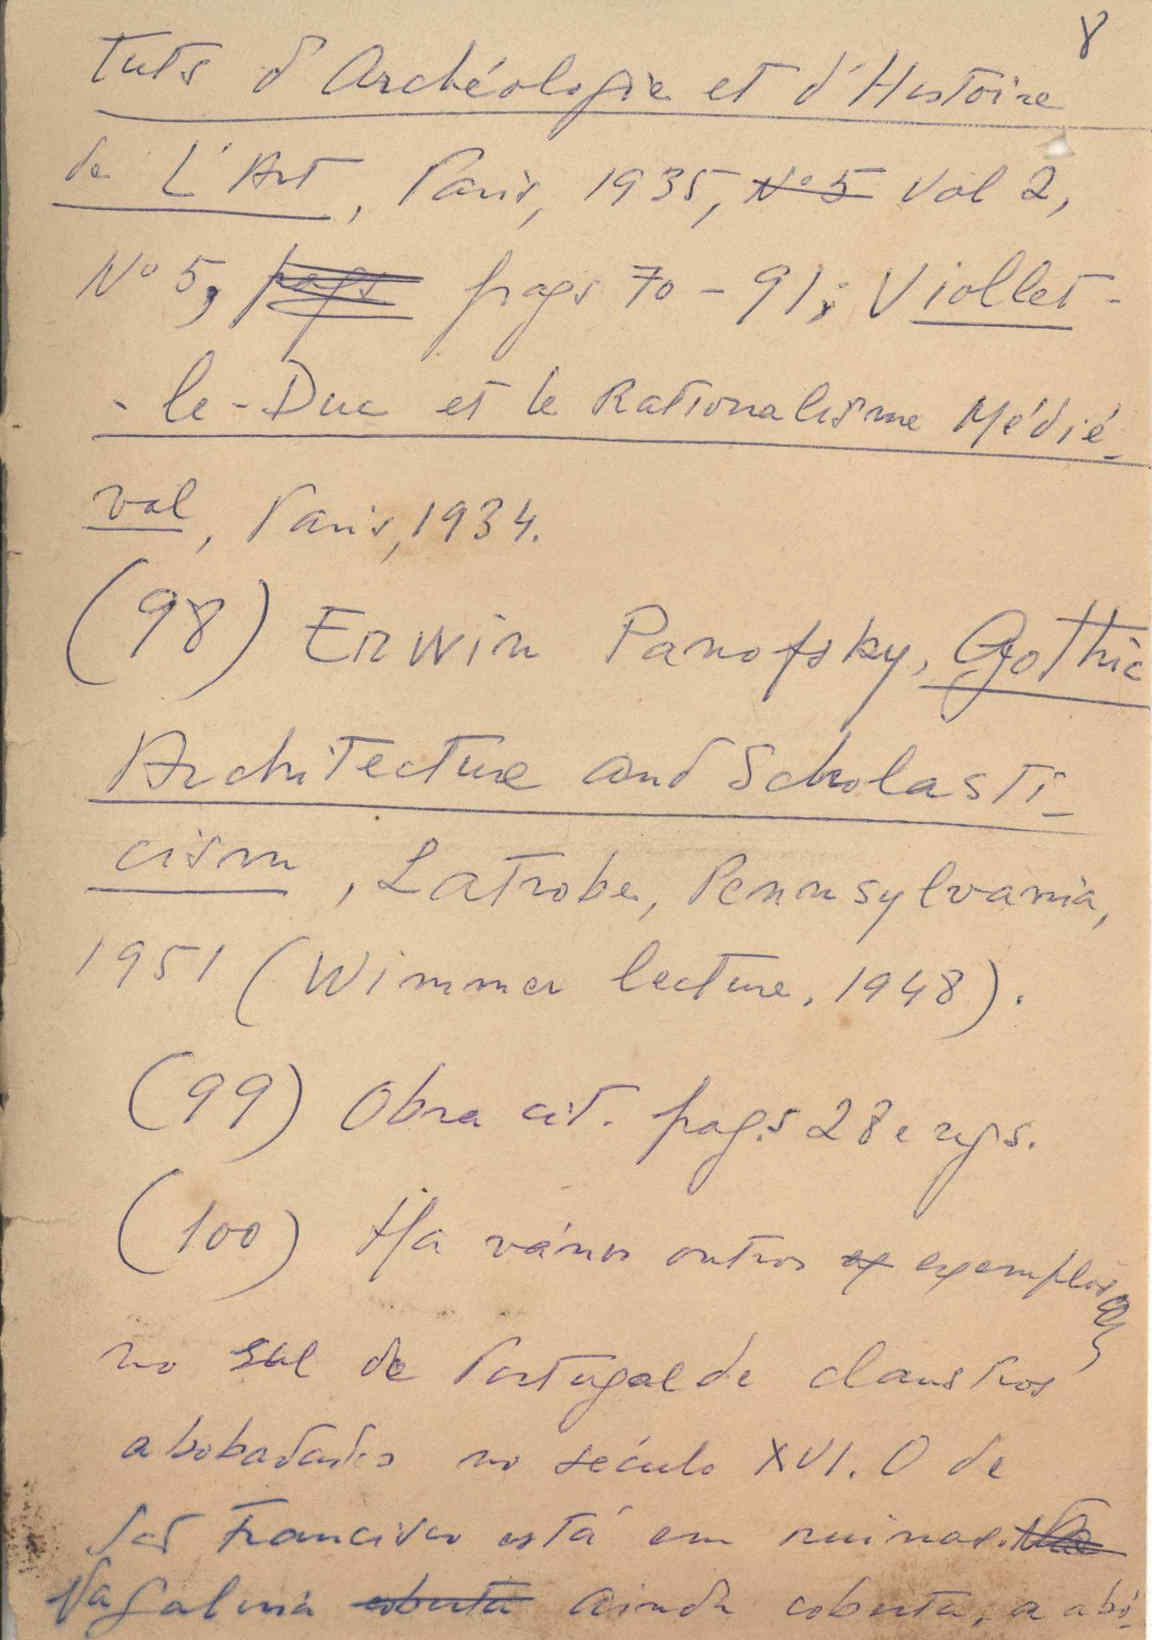 8
tuts d'Archéologie et d'Histoire
de L'Art, Paris, 1935, N.º 5 Vol 2,
Nº 5, pags pags 70-91; Viollet-
-le-Duc et le Rationalisme Médié-
val, Paris, 1934.
(98) Erwin Panofsky, Gothic
Architecture and Scholasti-
cism, Latrobe, Pennsylvania,
1951 (Wimmer lecture, 1948).
(99) Obra cit. pag.s 28 e segs.
(100) Ha vários outros ex exemplos
no sul de Portugal de claustros
abobadados no século XVI. O de
Francisco está em ruinas. Na
Na galeria coberta ainda coberta, a abó-